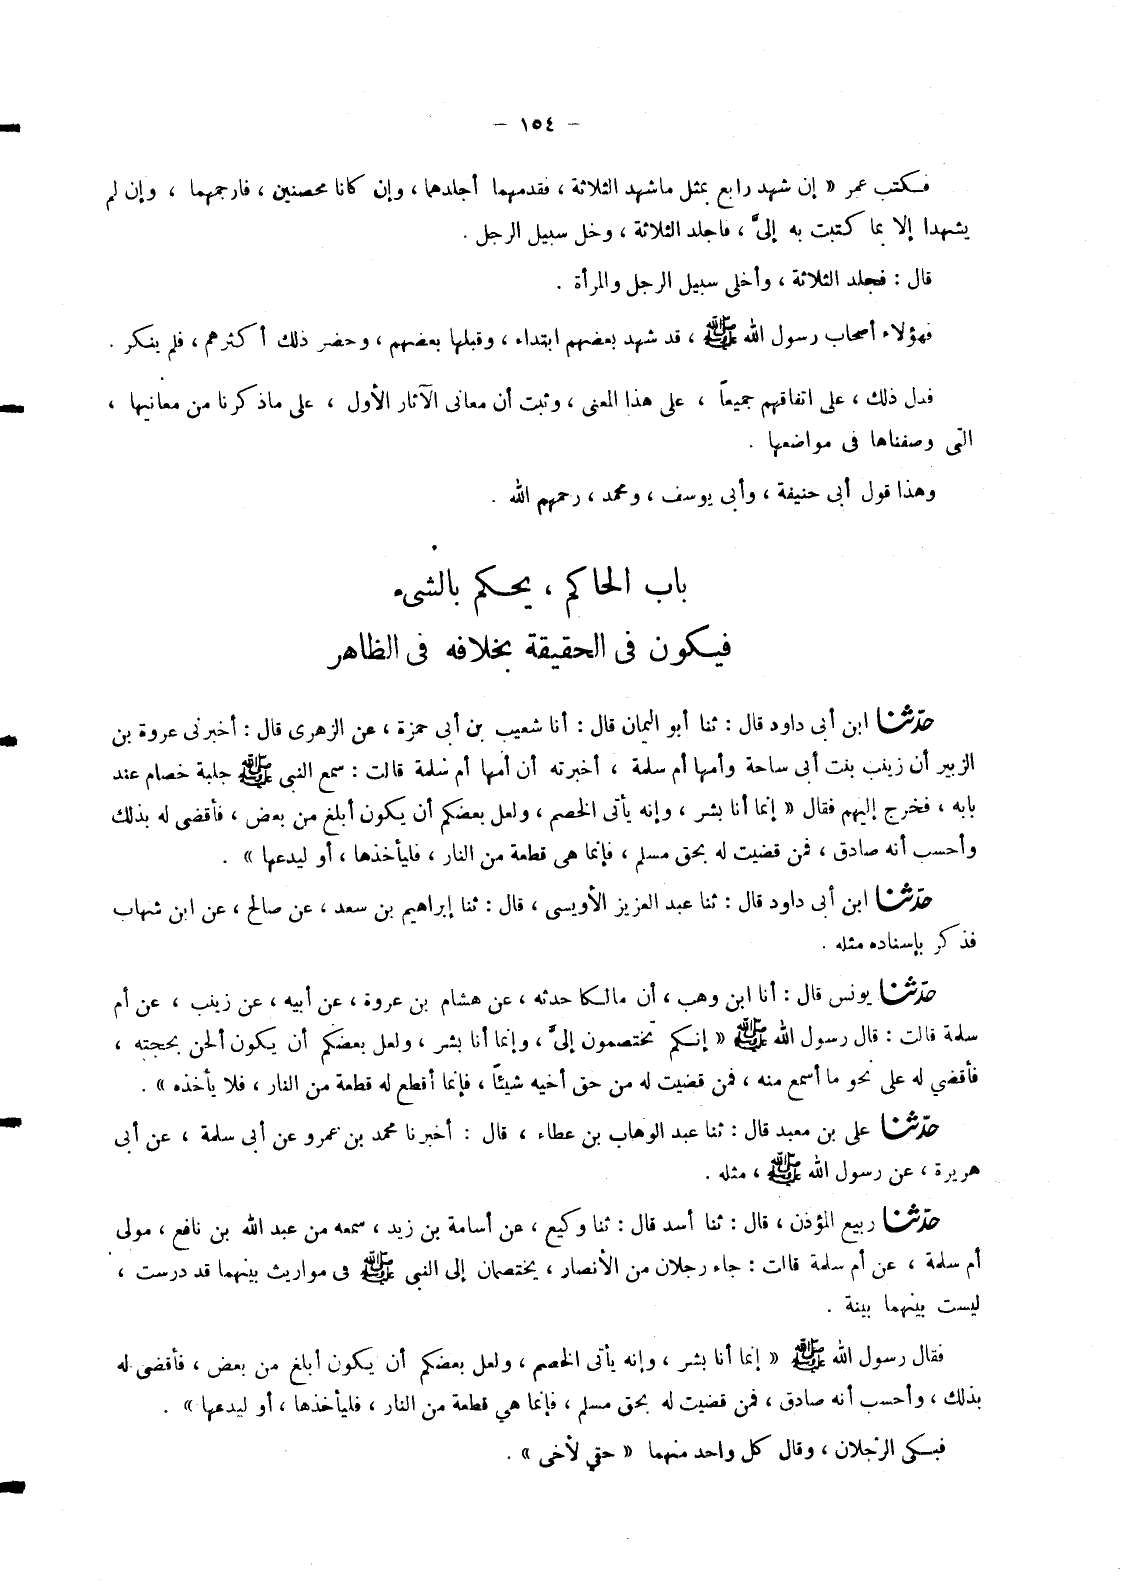 – ١٥٤ –
فكتب عمر « إن شهد رابع بمثل ماشهد الثلاثة ، فقدمهما أجلدهما ، وإن كانا محصنين ، فارجمهما ، وإن لم
يشهدا إلا بما كتبت به إلىَّ ، فاجلد الثلاثة ، وخل سبيل الرجل .
قال : فجلد الثلاثة ، وأخلى سبيل الرجل والمرأة .
فهؤلاء أصحاب رسول الله ﷺ ، قد شهد بعضهم ابتداء ، وقبلها بعضهم ، وحضر ذلك أكثرهم ، فلم ينكر .
فدل ذلك ، على اتفاقهم جميعاً ، على هذا المعنى ، وثبت أن معانى الآثار الأول ، على ماذكرنا من معانيها ،
التى وصفناها فى مواضعها .
وهذا قول أبى حنيفة ، وأبى يوسف ، ومحمد ، رحمهم الله .
باب الحاكم ، يحكم بالشىء
فيكون فى الحقيقة بخلافه فى الظاهر
حدّثنا ابن أبى داود قال : ثنا أبو اليمان قال : أنا شعيب بن أبى حمزة ، عن الزهرى قال : أخبرنى عروة بن
الزبير أن زينب بنت أبى ساحة وأمها أم سلمة ، أخبرته أن أمها أم سلمة قالت : سمع النبى ﷺ جلبة خصام عند
بابه ، فخرج إليهم فقال « إنما أنا بشر ، وإنه يأتى الخصم ، ولعل بعضكم أن يكون أبلغ من بعض ، فأقضى له بذلك
وأحسب أنه صادق ، فمن قضيت له بحق مسلم ، فإنما هى قطعة من النار ، فليأخذها ، أو ليدعها » .
حدّثنا ابن أبى داود قال : ثنا عبد العزيز الأويسى ، قال : ثنا إبراهيم بن سعد ، عن صالح ، عن ابن شهاب
فذكر بإسناده مثله .
حدّثنا يونس قال : أنا ابن وهب ، أن مالكا حدثه ، عن هشام بن عروة ، عن أبيه ، عن زينب ، عن أم
سلمة قالت : قال رسول الله ﷺ « إنكم تختصمون إلىَّ ، وإنما أنا بشر ، ولعل بعضكم أن يكون ألحن بحجته ،
فأقضي له على نحو ما أسمع منه ، فمن قضيت له من حق أخيه شيئاً ، فإنما أقطع له قطعة من النار ، فلا يأخذه » .
حدّثنا على بن معبد قال : ثنا عبد الوهاب بن عطاء ، قال : أخبرنا محمد بن عمرو عن أبى سلمة ، عن أبى
هريرة ، عن رسول الله ﷺ ، مثله .
حدّثنا ربيع المؤذن ، قال : ثنا أسد قال : ثنا وكيع ، عن أسامة بن زيد ، سمعه من عبد الله بن نافع ، مولى
أم سلمة ، عن أم سلمة قالت : جاء رجلان من الأنصار ، يختصمان إلى النبى ﷺ فى مواريث بينهما قد درست ،
ليست بينهما بينة .
فقال رسول الله ﷺ « إنما أنا بشر ، وإنه يأتى الخصم ، ولعل بعضكم أن يكون أبلغ من بعض ، فأقضى له
بذلك ، وأحسب أنه صادق ، فمن قضيت له بحق مسلم ، فإنما هي قطعة من النار ، فليأخذها ، أو ليدعها » .
فبكى الرجلان ، وقال كل واحد منهما « حقي لأخى » .